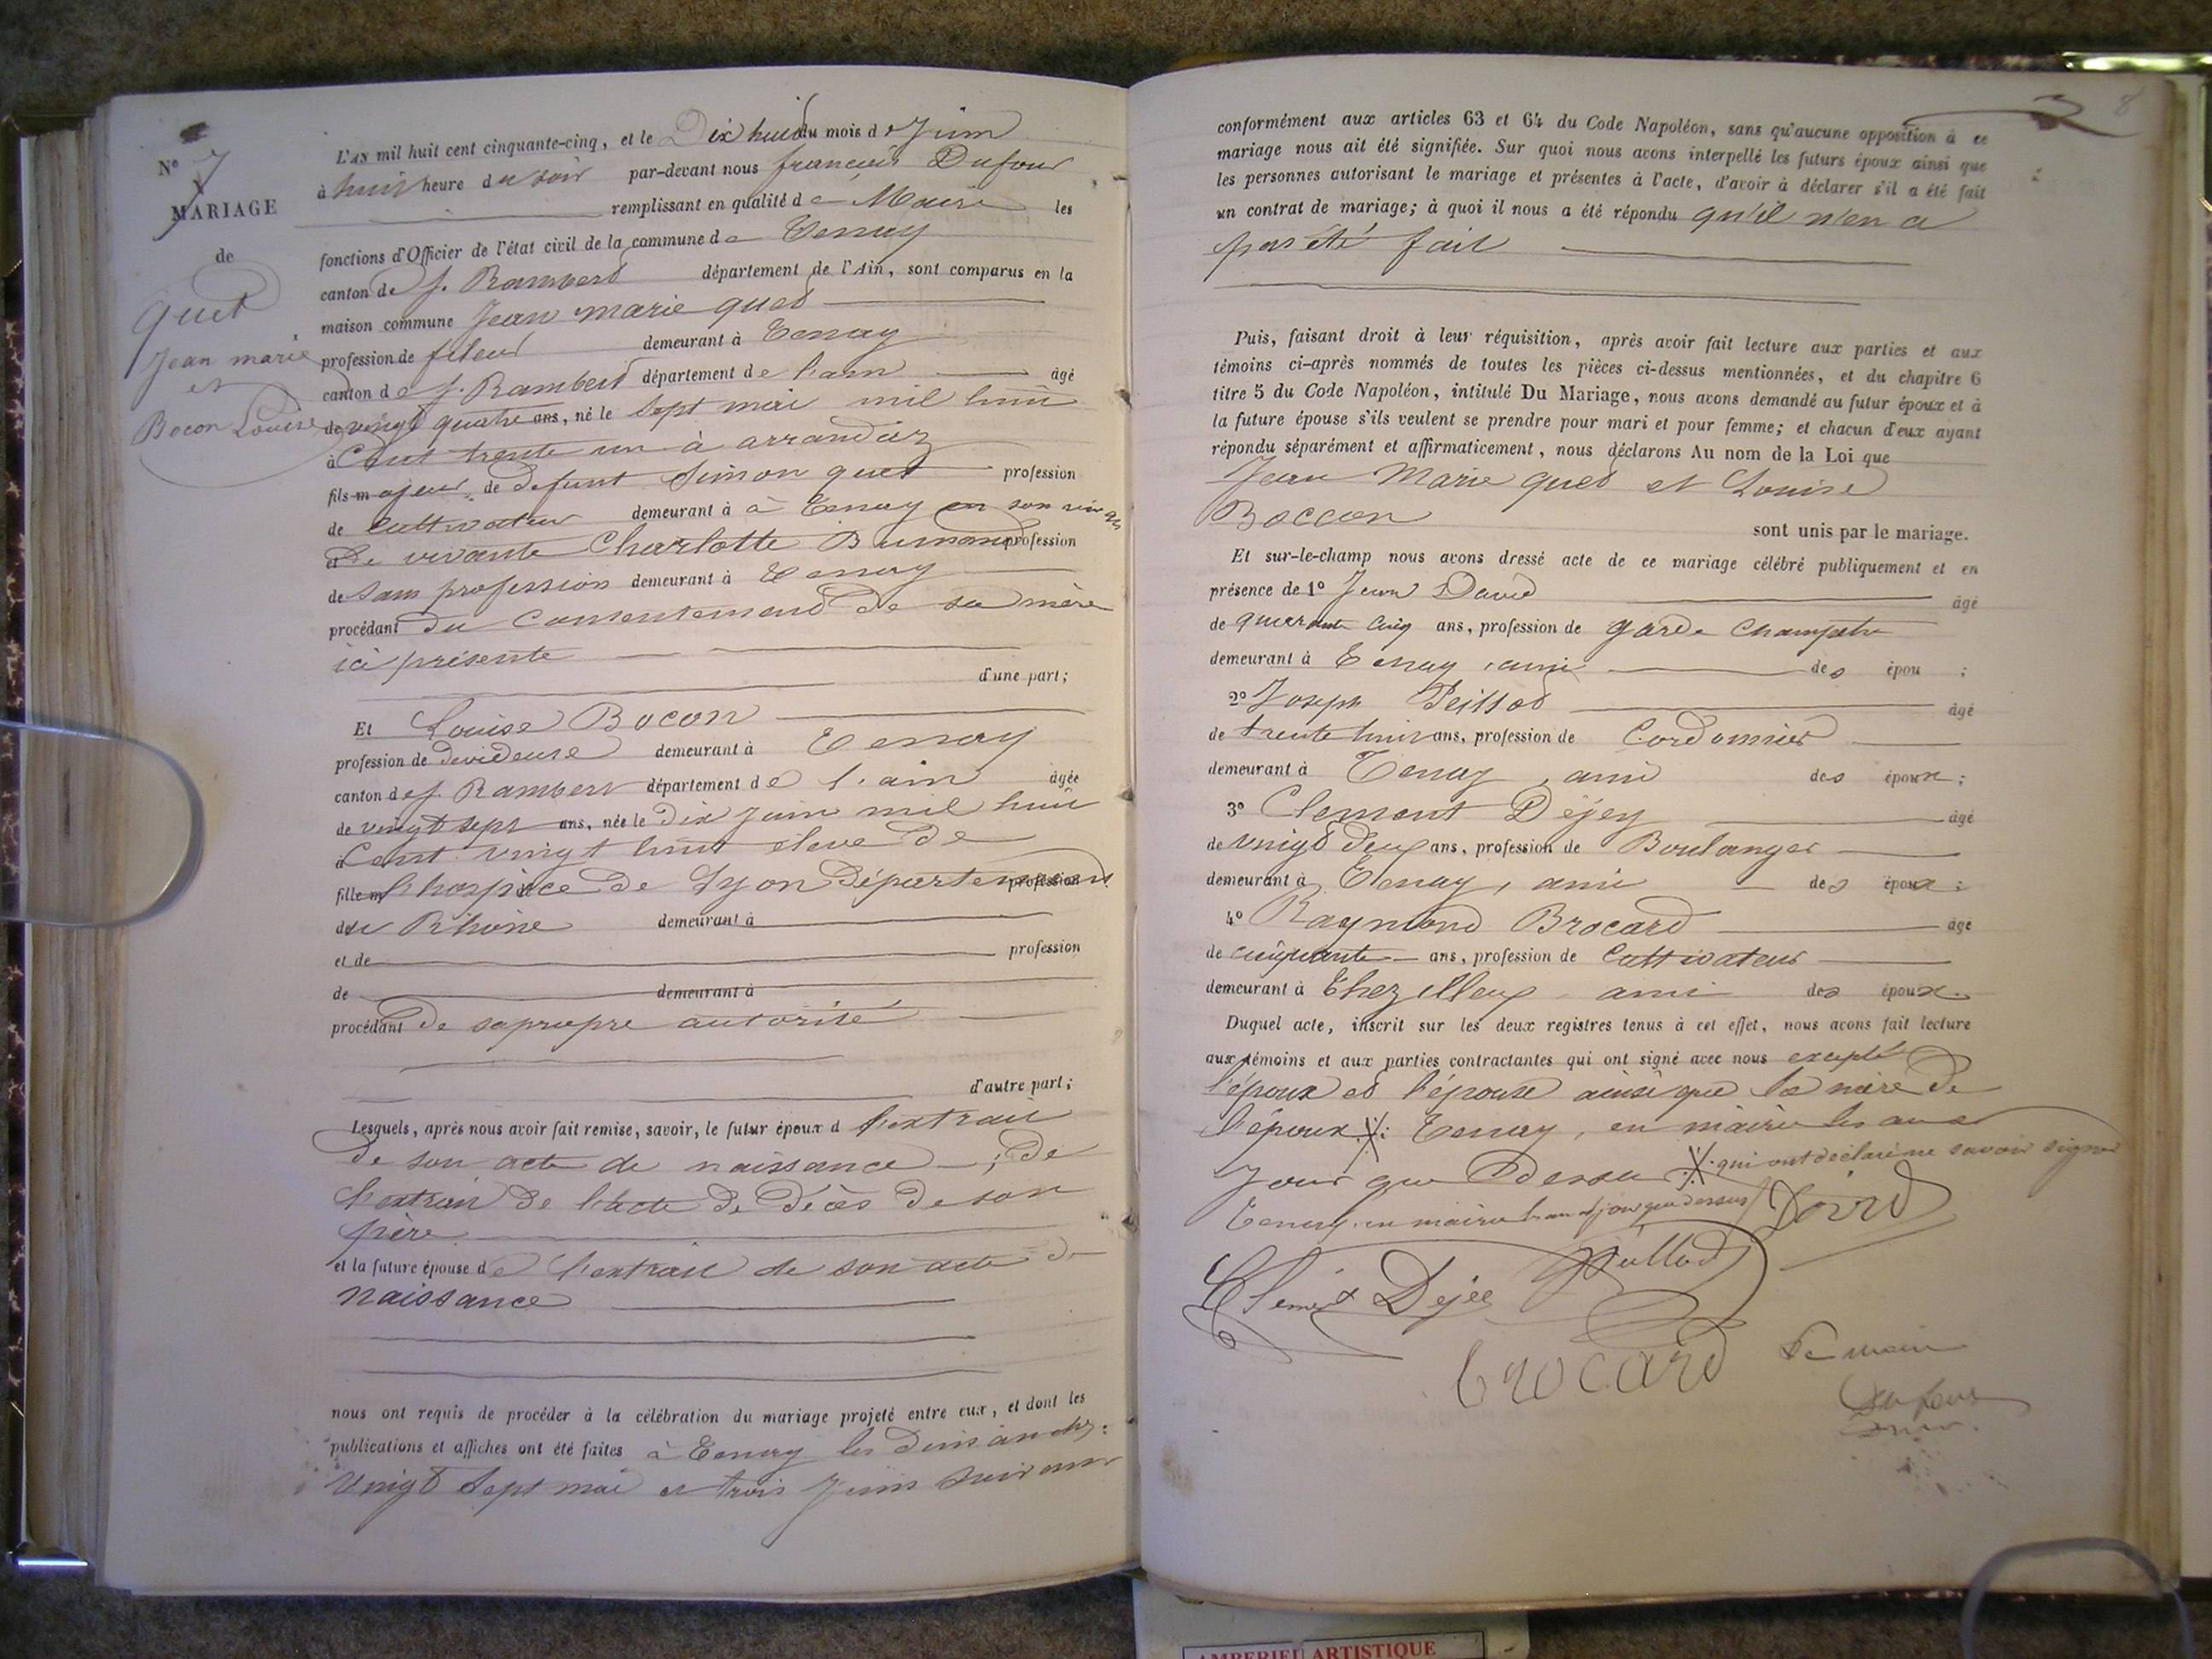 N° 7
MARIAGE
de
quet
Jean marie
et
Bocon Louise
L'AN mil huit cent cinquante-cinq, et le Dix huit du mois de Juin
à huit heure du soir par-devant nous francois Dufour
remplissant en qualité de Maire les
fonctions d'Officier de l'état civil de la commune de Tenay
canton de St. Rambert département de l'Ain, sont comparus en la
maison commune Jean marie quet
profession de fileur demeurant à Tenay
canton de St. Rambert département de l'ain âgé
de vingt quatre ans, né le sept mai mil huit
à Cent trente un à arrandaz
fils majeur de defunt Simon quet profession
de cultivateur demeurant à à Tenay en son vivant
et De vivante Charlotte Brunand profession
de sans profession demeurant à Tenay
procédant du Consentement de sa mère
ici présente
d'une part;
Et Louise Bocon
profession de devideuse demeurant à Tenay
canton de St. Rambert département de l'ain âgée
de vingt sept ans, née le dix juin mil huit
à Cent vingt huit éleve de
fille m l'hospice de Lyon Département profession
de du Rhône demeurant à
et de profession
de demeurant à
procédant de sa propre autorité
d'autre part;
Lesquels, après nous avoir fait remise, savoir, le futur époux d l'extrait
de son acte de naissance ; de
l'extrait de l'acte de Décès de son
père
et la future épouse de l'extrait de son acte de
naissance
nous ont requis de procéder à la célébration du mariage projeté entre eux, et dont les
publications et affiches ont été faites à Tenay les dimanches
vingt sept mai et trois Juin suivant
8
conformément aux articles 63 et 64 du Code Napoléon, sans qu'aucune opposition à ce
mariage nous ait été signifiée. Sur quoi nous avons interpellé les futurs époux ainsi que
les personnes autorisant le mariage et présentes à l'acte, d'avoir à déclarer s'il a été fait
un contrat de mariage; à quoi il nous a été répondu qu'il n'en a
pas été fait
Puis, faisant droit à leur réquisition, après avoir fait lecture aux parties et aux
témoins ci-après nommés de toutes les pièces ci-dessus mentionnées, et du chapitre 6
titre 5 du Code Napoléon, intitulé Du Mariage, nous avons demandé au futur époux et à
la future épouse s'ils veulent se prendre pour mari et pour femme; et chacun d'eux ayant
répondu séparément et affirmativement, nous déclarons Au nom de la Loi que
Jean Marie quet et Louise
Boccon sont unis par le mariage.
Et sur-le-champ nous avons dressé acte de ce mariage célébré publiquement et en
présence de 1° Jean David âgé
de quarante cinq ans, profession de garde champetre
demeurant à Tenay, ami des épou ;
2° Joseph Peillod âgé
de trente huit ans, profession de Cordonnier
demeurant à Tenay, ami des époux;
3° Clement Déjey âgé
de vingt deux ans, profession de Boulanger
demeurant à Tenay, ami des époux;
4° Raymond Brocard âgé
de cinquante ans, profession de Cultivateur
demeurant à Chezilleux ami des époux.
Duquel acte, inscrit sur les deux registres tenus à cet effet, nous avons fait lecture
aux témoins et aux parties contractantes qui ont signé avec nous excepté
l'époux et l'épouse ainsi que la mère de
l'époux : Tenay, en mairie les an et
Jour que Dessus qui ont déclaré ne savoir signer
Tenay, en mairie les an et jour que dessus David
Clement Dejée Peillod
Brocard Le maire
Dufour